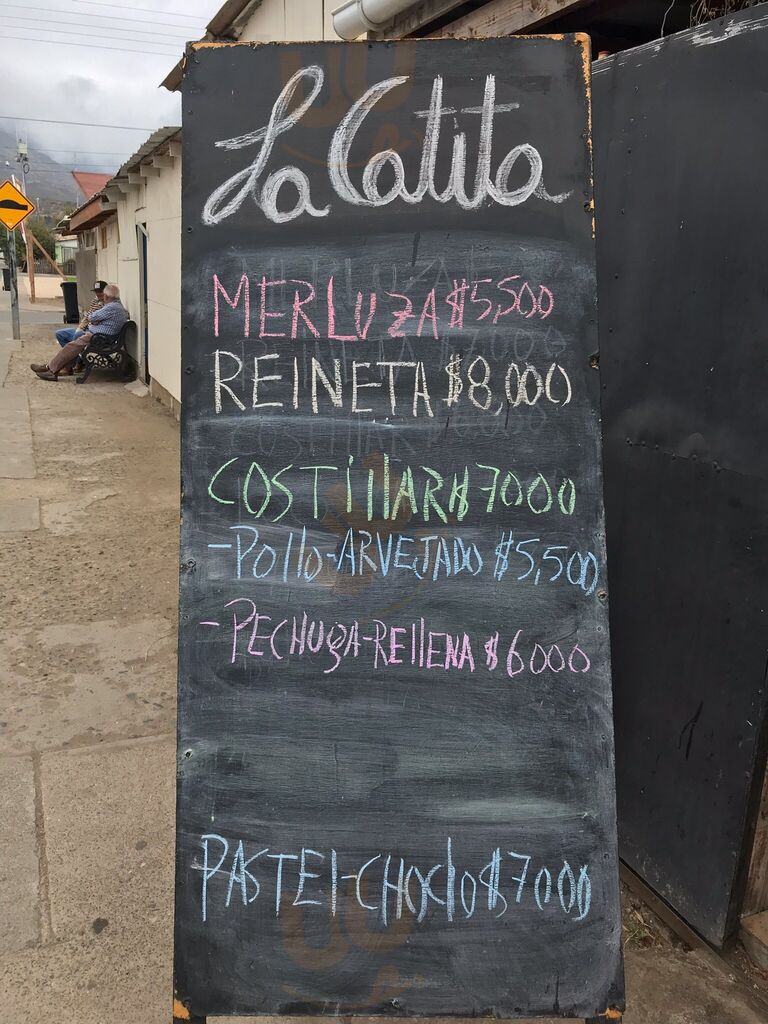 La Catita
MERLUZA $5,500
REINETA $8,000
COSTillAR $7000
-Pollo-ARVEJADO $5,500
-PECHUgA-REllENA $6000
PASTEl-CHOClo $7000